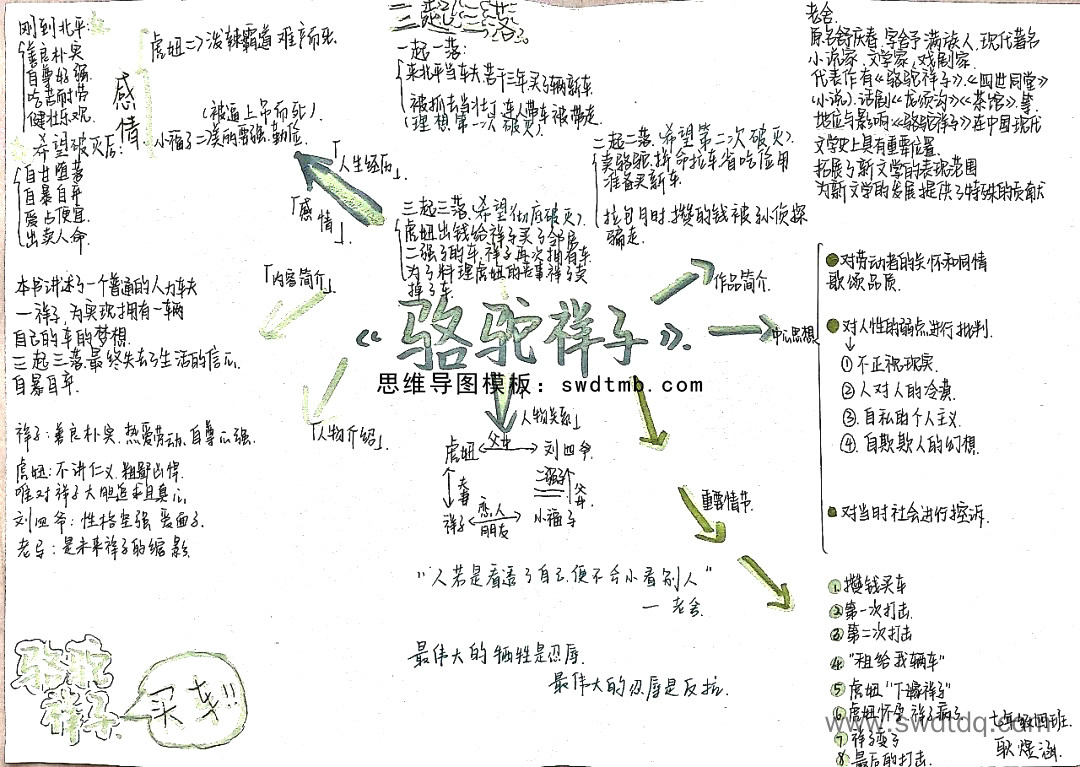 刚到北平:
善良朴实
自尊好强
吃苦耐劳
健壮乐观.
希望破灭后:
自甘堕落
自暴自弃
爱占便宜.
出卖人命.
感情
虎妞=>泼辣霸道 难产而死.
(被逼上吊而死).
小福子=>美丽要强勤俭
「人生经历」
「感情」
三起三落.
一起一落:
来北平当车夫 苦干三年 买了辆新车.
被抓去当壮丁 连人带车被带走.
(理想第一次破灭).
二起二落.(希望第二次破灭).
卖骆驼,拼命拉车省吃俭用
准备买新车.
拉包月时.攒的钱被孙侦探
骗走.
三起三落.(希望彻底破灭).
虎妞出钱给祥子买了邻居
二强子的车,祥子再次拥有车
为了料理虎妞的丧事祥子卖
掉了车.
老舍.
原名舒庆春,字舍予 满族人,现代著名
小说家,文学家,戏剧家.
代表作有《骆驼祥子》.《四世同堂》
(小说).话剧《龙须沟》《茶馆》.等.
地位与影响《骆驼祥子》在中国现代
文学史上具有重要位置.
拓展了新文学的表现范围
为新文学的发展提供了特殊的贡献
「内容简介」
本书讲术了一个普通的人力车夫
一祥子,为实现拥有一辆
自己的车的梦想.
三起三落.最终失去了生活的信心.
自暴自弃.
《骆驼祥子》.
思维导图模板：swdtmb.com
作品简介.
中心思想
对劳动者的关怀和同情
歌颂品质.
对人性的弱点进行批判.
① 不正视现实.
② 人对人的冷莫.
③ 自私的个人主义.
④. 自欺欺人的幻想
对当时社会进行控诉.
「人物介绍」.
祥子:善良朴实.热爱劳动.自尊心强.
虎妞:不讲仁义.粗鄙凶悍.
唯对祥子大胆追求且真心.
刘四爷: 性格坚强 爱面子.
老马: 是未来祥子的缩影.
「人物关系」
虎妞 父女 刘四爷.
夫妻
二强子
父女
祥子 恋人 朋友 小福子
重要情节.
①攒钱买车
②第一次打击.
③第二次打击
④"租给我辆车"
⑤虎妞"下嫁祥子"
⑥虎妞怀孕 祥子病了
⑦祥子变了
⑧最后的打击.
"人若是看透了自己便不会小看别人"
— 老舍.
最伟大的牺牲是忍辱.
最伟大的忍辱是反抗.
骆驼
祥子
买车!!
www.swdtdq.com
七年级四班.
耿煜涵.